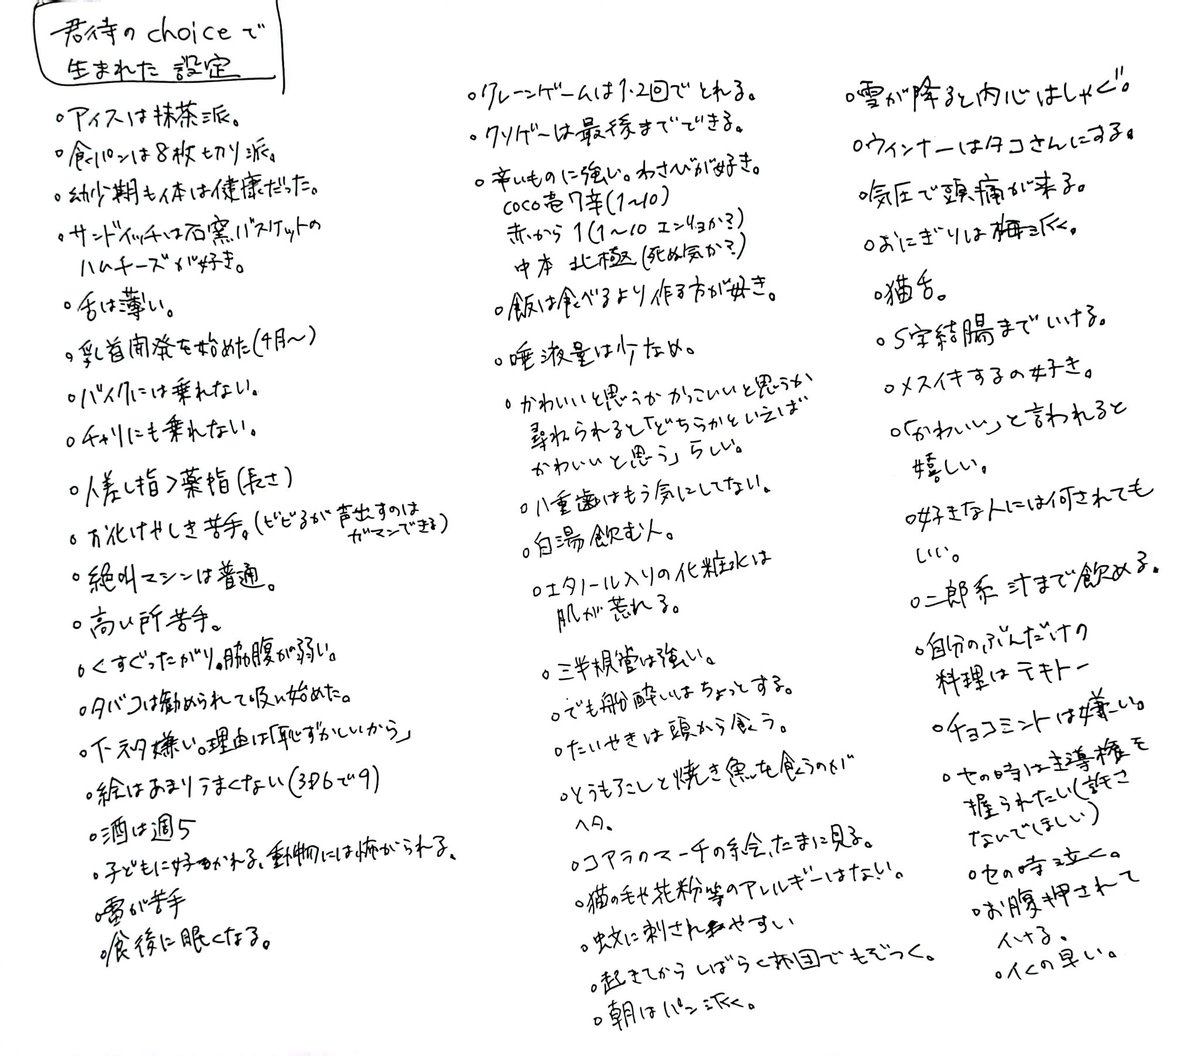 君待のchoiceで
生まれた設定
○アイスは抹茶派。
○食パンは8枚切り派。
○幼少期も体は健康だった。
○サンドイッチは石窯バスケットの
ハムチーズが好き。
○舌は薄い。
○乳首開発を始めた(4月〜)
○バイクには乗れない。
○チャリにも乗れない。
○人差し指>薬指(長さ)
○お化けやしき苦手。(ビビるが声出すのは
ガマンできる)
○絶叫マシンは普通。
○高い所苦手。
○くすぐったがり。脇腹が弱い。
○タバコは勧められて吸い始めた。
○下ネタ嫌い。理由は「恥ずかしいから」
○絵はあまりうまくない
○酒は週5
○子どもに好かれる、動物には怖がられる。
○雷が苦手
○食後に眠くなる。
○クレーンゲームは1・2回でとれる。
○クソゲーは最後までできる。
○辛いものに強い。わさびが好き。
coco壱7辛(1〜10)
赤から1(1〜10エンリョか?)
中本 北極(死ぬ気か?)
○飯は食べるより作る方が好き。
○唾液量は少なめ。
○かわいいと思うかかっこいいと思うか
尋ねられると「どちらかといえば
かわいいと思う」らしい。
○八重歯はもう気にしてない。
○白湯飲む人。
○エタノール入りの化粧水は
肌が荒れる。
○三半規管は強い。
○でも船酔いはちょっとする。
○たいやきは頭から食う。
○とうもろこしと焼き魚を食うのが
ヘタ。
○コアラのマーチの絵、たまに見る。
○猫の毛や花粉等のアレルギーはない。
○蚊に刺されやすい
○起きてからしばらく布団でもぞつく。
○朝はパン派。
○雪が降ると内心はしゃぐ。
○ウィンナーはタコさんにする。
○気圧で頭痛が来る。
○おにぎりは梅派。
○猫舌。
○S字結腸までいける。
○メスイキするの好き。
○「かわいい」と言われると
嬉しい。
○好きな人には何されても
いい。
○二郎系 汁まで飲める。
○自分のぶんだけの
料理はテキトー
○チョコミントは嫌い。
○セの時は主導権を
握られたい(許さ
ないでほしい)
○セの時泣く。
○お腹押されて
イける。
○イくの早い。